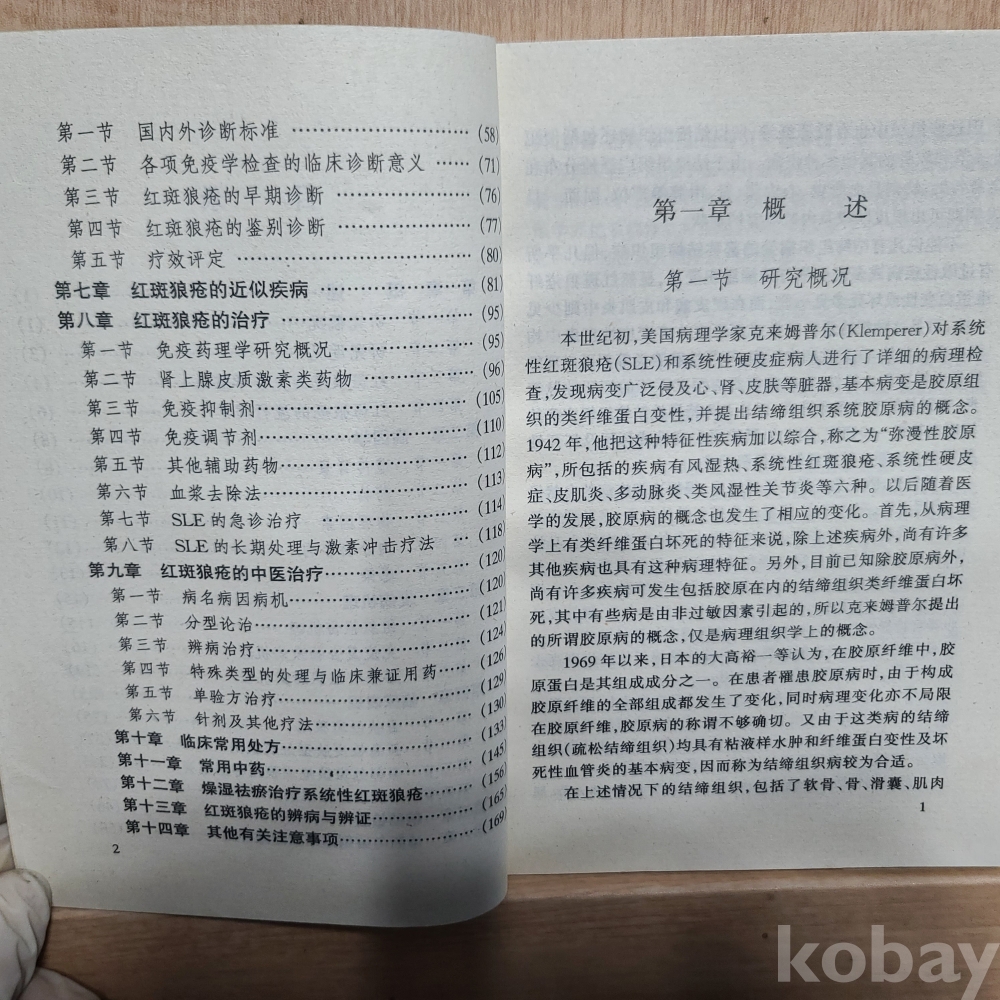 第一节 国内外诊断标准 ………………………… (58)
第二节 各项免疫学检查的临床诊断意义 …… (71)
第三节 红斑狼疮的早期诊断 ………………… (76)
第四节 红斑狼疮的鉴别诊断 ………………… (77)
第五节 疗效评定 ……………………………… (80)
第七章 红斑狼疮的近似疾病 ………………… (81)
第八章 红斑狼疮的治疗 ……………………… (95)
第一节 免疫药理学研究概况 ………………… (95)
第二节 肾上腺皮质激素类药物 ……………… (96)
第三节 免疫抑制剂 …………………………… (105)
第四节 免疫调节剂 …………………………… (110)
第五节 其他辅助药物 ………………………… (112)
第六节 血浆去除法 …………………………… (113)
第七节 SLE的急诊治疗 ……………………… (114)
第八节 SLE的长期处理与激素冲击疗法 …… (118)
第九章 红斑狼疮的中医治疗 ………………… (120)
第一节 病名病因病机 ………………………… (120)
第二节 分型论治 ……………………………… (121)
第三节 辨病治疗 ……………………………… (124)
第四节 特殊类型的处理与临床兼证用药 …… (126)
第五节 单验方治疗 …………………………… (129)
第六节 针剂及其他疗法 ……………………… (130)
第十章 临床常用处方 ………………………… (133)
第十一章 常用中药 …………………………… (145)
第十二章 燥湿祛瘀治疗系统性红斑狼疮 …… (156)
第十三章 红斑狼疮的辨病与辨证 …………… (165)
第十四章 其他有关注意事项 ………………… (169)
2
第一章 概 述
第一节 研究概况
本世纪初，美国病理学家克来姆普尔(Klemperer)对系统
性红斑狼疮(SLE)和系统性硬皮症病人进行了详细的病理检
查，发现病变广泛侵及心、肾、皮肤等脏器，基本病变是胶原组
织的类纤维蛋白变性，并提出结缔组织系统胶原病的概念。
1942年，他把这种特征性疾病加以综合，称之为“弥漫性胶原
病”，所包括的疾病有风湿热、系统性红斑狼疮、系统性硬皮
症、皮肌炎、多动脉炎、类风湿性关节炎等六种。以后随着医
学的发展，胶原病的概念也发生了相应的变化。首先，从病理
学上有类纤维蛋白坏死的特征来说，除上述疾病外，尚有许多
其他疾病也具有这种病理特征。另外，目前已知除胶原病外，
尚有许多疾病可发生包括胶原在内的结缔组织类纤维蛋白坏
死，其中有些病是由非过敏因素引起的，所以克来姆普尔提出
的所谓胶原病的概念，仅是病理组织学上的概念。
1969年以来，日本的大高裕一等认为，在胶原纤维中，胶
原蛋白是其组成成分之一。在患者罹患胶原病时，由于构成
胶原纤维的全部组成都发生了变化，同时病理变化亦不局限
在胶原纤维，胶原病的称谓不够确切。又由于这类病的结缔
组织(疏松结缔组织)均具有粘液样水肿和纤维蛋白变性及坏
死性血管炎的基本病变，因而称为结缔组织病较为合适。
在上述情况下的结缔组织，包括了软骨、骨、滑囊、肌肉
1
kobay